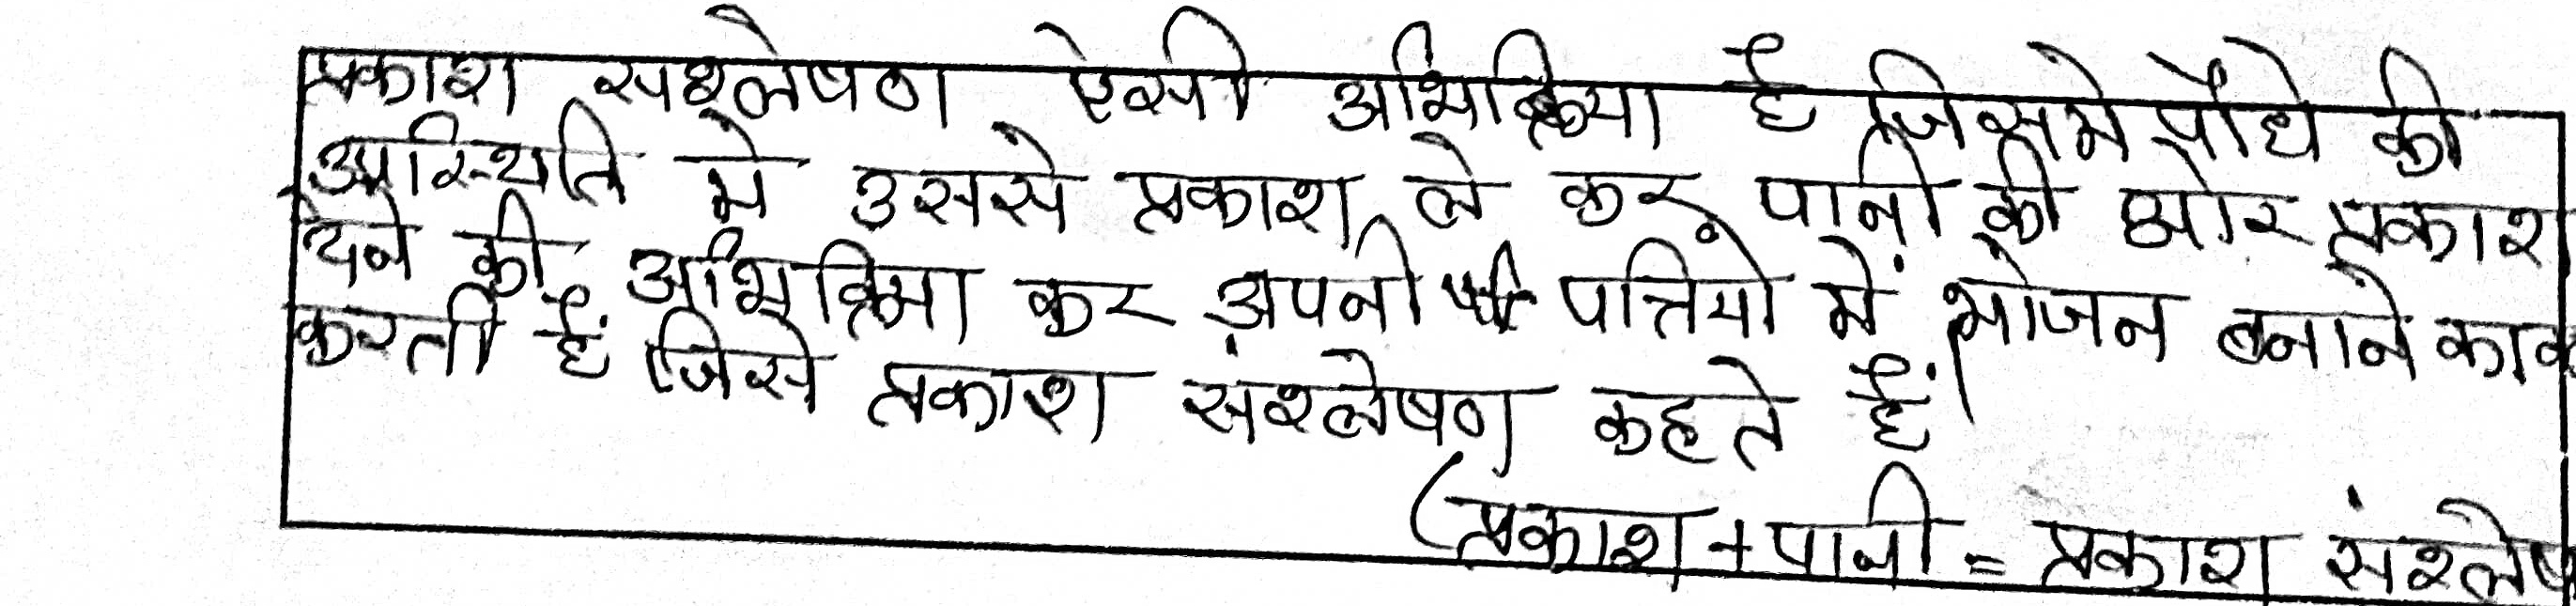 प्रकाश सश्लेषण ऐसी अभिक्रिया है जिसमे पौधे की
उपस्थिति मे उससे प्रकाश ले कर पानी की और प्रकाश
देने की अभिक्रिया कर अपनी पत्तियो में भोजन बनाने का
करती हैं जिसे प्रकाश संश्लेषण कहते हैं।
(प्रकाश + पानी = प्रकाश संश्लेष